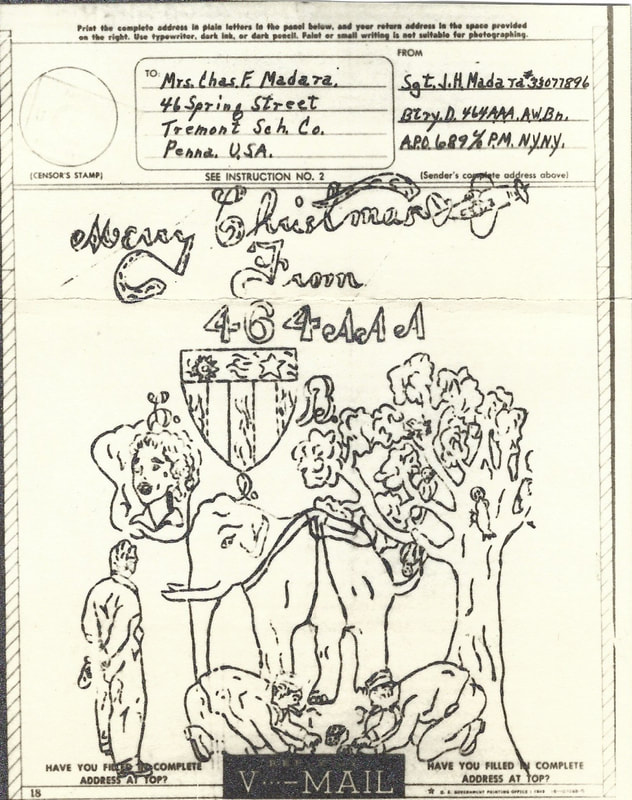 Print the complete address in plain letters in the panel below, and your return address in the space provided
on the right. Use typewriter, dark ink, or dark pencil. Faint or small writing is not suitable for photographing.
FROM
TO:
Mrs. Chas. F. Madara.
46 Spring Street
Tremont Sch. Co.
Penna. U.S.A.
Sgt. J.H. Madara #33077896
Btry. D. 464 AAA. A.W. Bn.
A.P.O. 689 % P.M. N.Y. N.Y.
(CENSOR'S STAMP)
SEE INSTRUCTION NO. 2
(Sender's complete address above)
Merry Christmas
From
464 AAA
B.
HAVE YOU FILLED IN COMPLETE
ADDRESS AT TOP?
REPLY BY
V···–MAIL
HAVE YOU FILLED IN COMPLETE
ADDRESS AT TOP?
18
☆ U. S. GOVERNMENT PRINTING OFFICE :